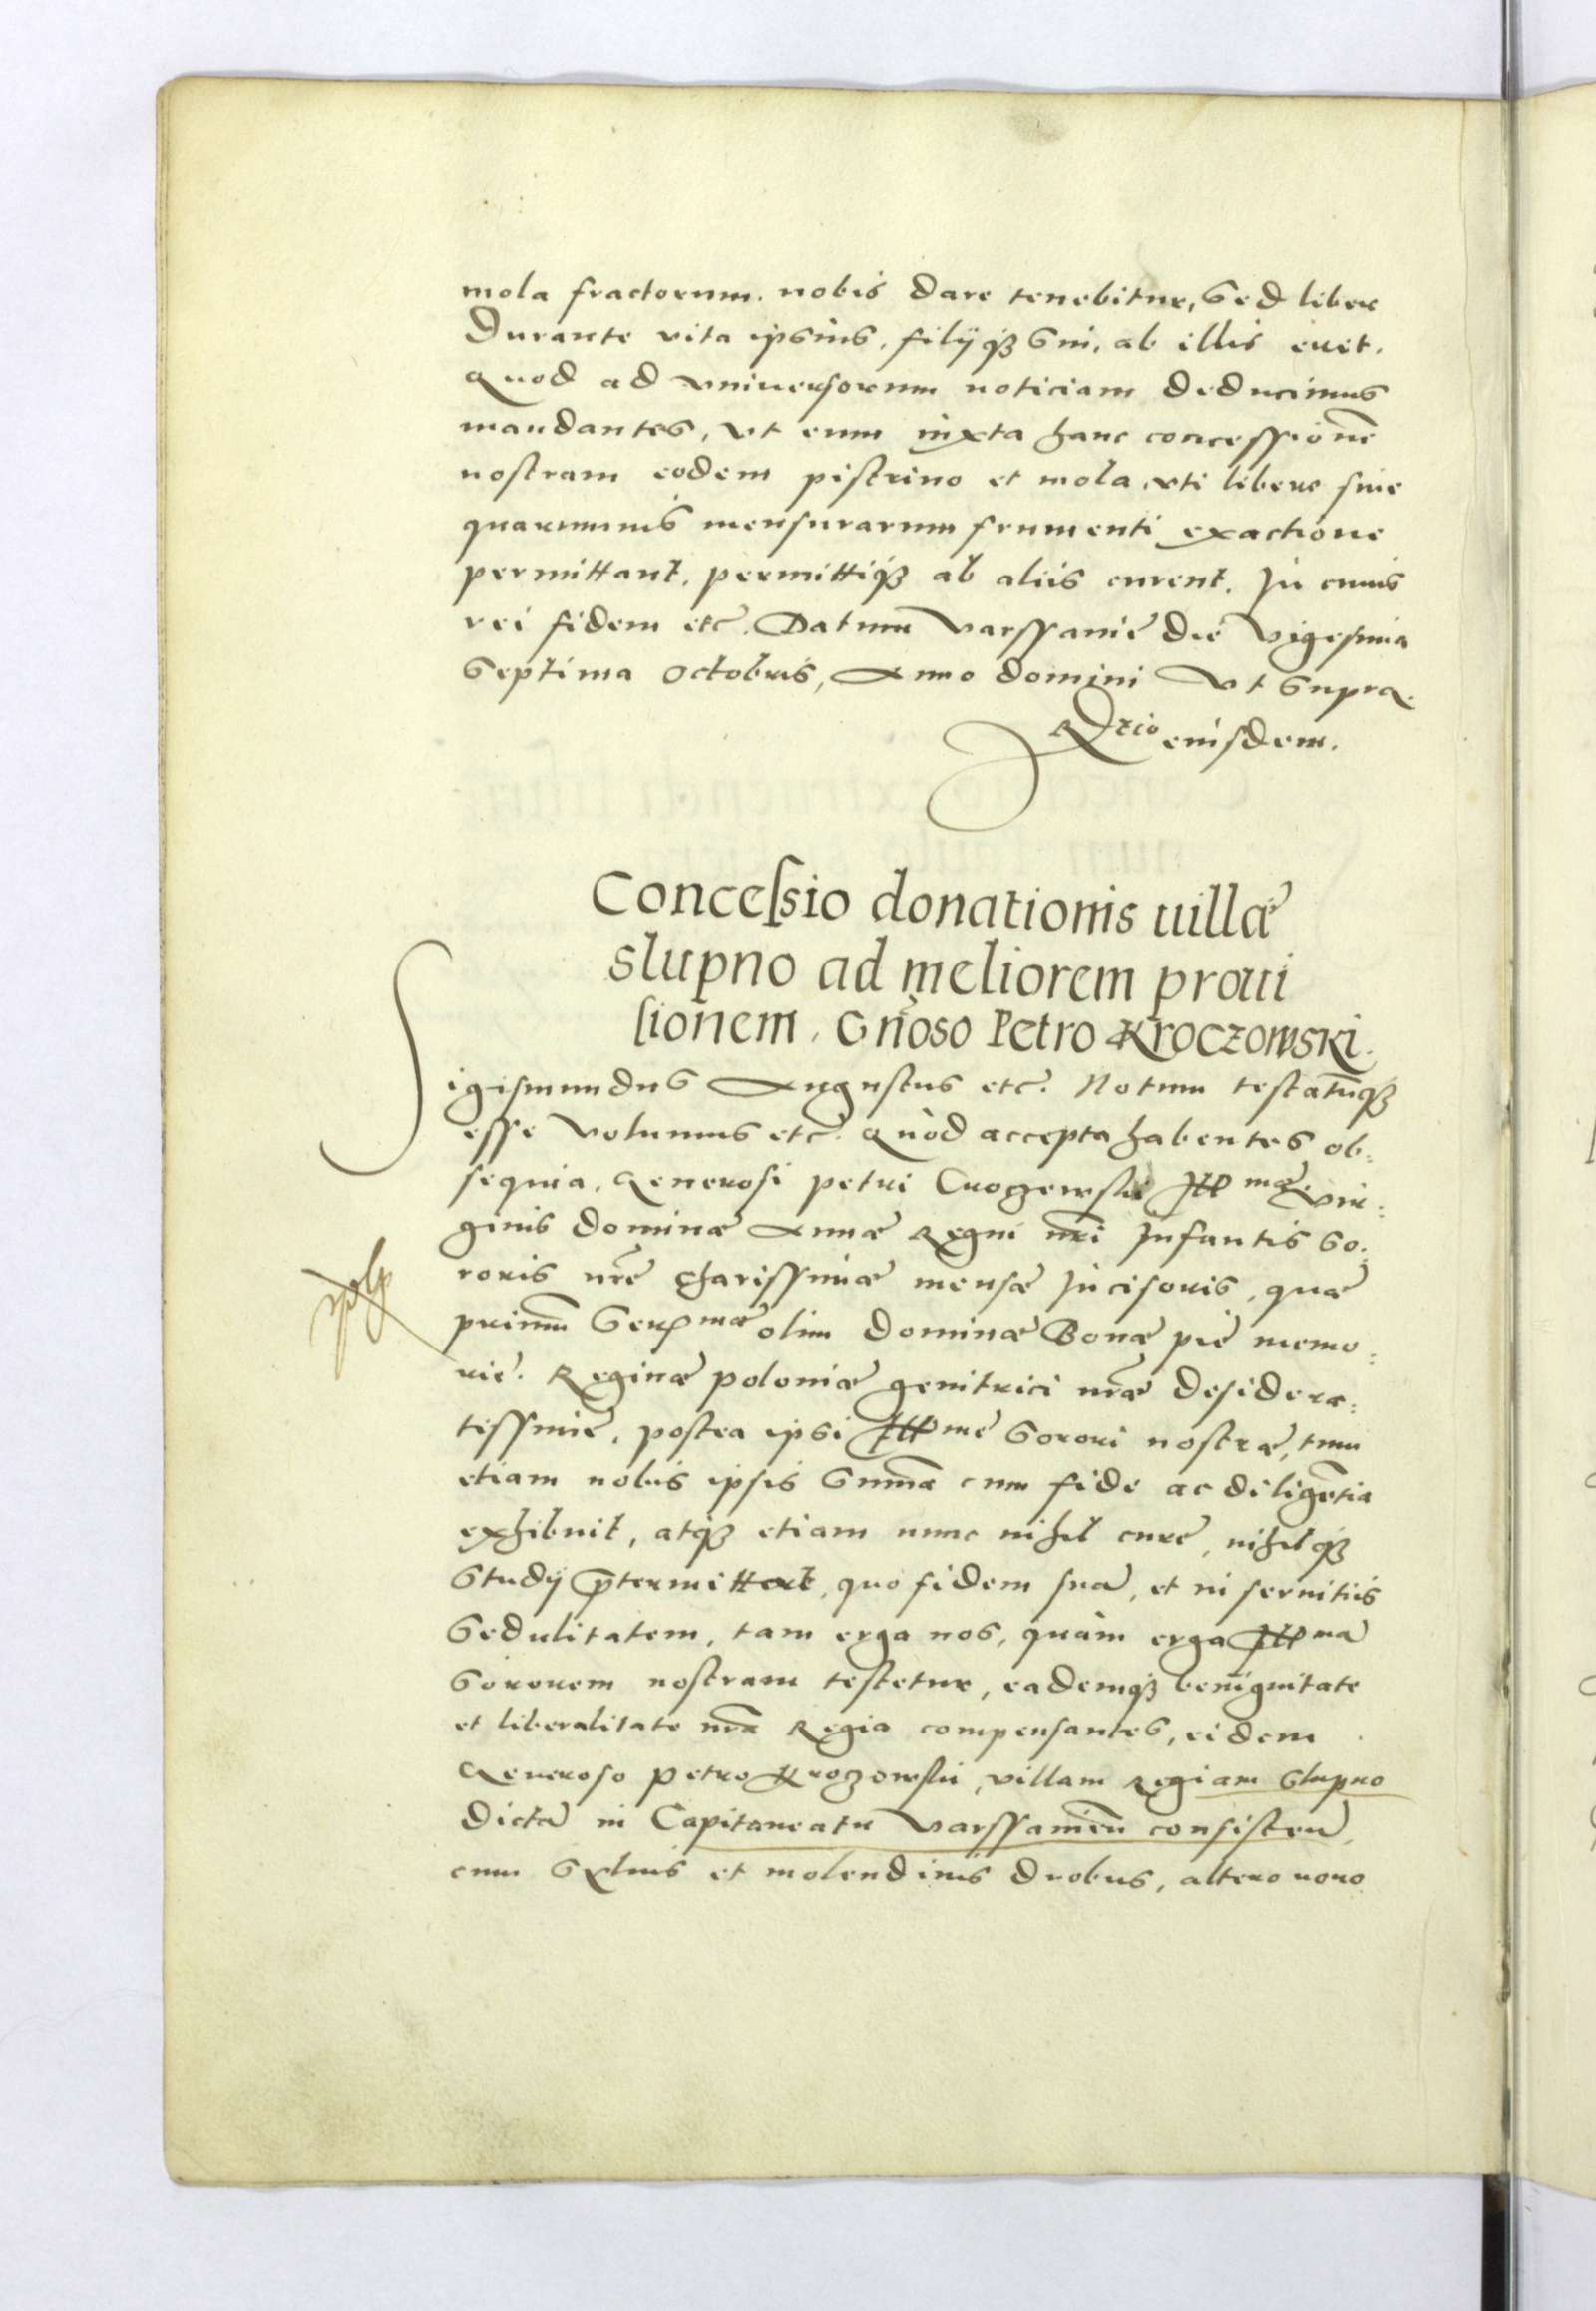 mola fractorum. nobis dare tenebitur, sed liber
durante vita ipsius, filijqꝫ sui, ab illis erit.
Quod ad vniuersorum noticiam deducimus
mandantes, vt eum iuxta hanc concessionē
nostram eodem pistrino et mola vti libere sine
quarumuis mensurarum frumenti exactione
permittant, permittiqꝫ ab aliis curent. In cuius
rei fidem etc. Datum varssauie die vigesima
septima octobris, Anno domini vt supra.
Rtio eiusdem.
Concessio donationis uillæ
slupno ad meliorem proui
sionem. Gn̄oso Petro Kroczowski.
Sigismundus Augustus etc. Notum testatūqꝫ
esse volumus etc. Quòd accepta habentes ob:
sequia, Generosi petri Croczewski Illmæ vir:
ginis dominæ Annæ Regni nr̄i Infantis so:
roris nr̄e charissimæ mensæ Incisoris, quæ
primū Sermæ olim dominæ Bonæ pie memo:
rie. Reginæ poloniæ genitrici nr̄æ desidera:
tissimie, postea ipsi Illme sorori nostræ, tum
etiam nobis ipsis sum̄a cum fide ac diligētia
exhibuit, atqꝫ etiam nunc nihil cure, nihilqꝫ
studij p̄termittert, quo fidem suā, et in seruitiis
sedulitatem, tam erga nos, quàm erga Illmā
sororem nostram testetur, eademqꝫ benignitate
et liberalitate nr̄a Regia compensantes, eidem
Generoso petro Kroczowski, villam Regiam slupno
dictā in Capitaneatu varssauien̄ consisteū,
cum syluis et molendinis duobus, altero nouo